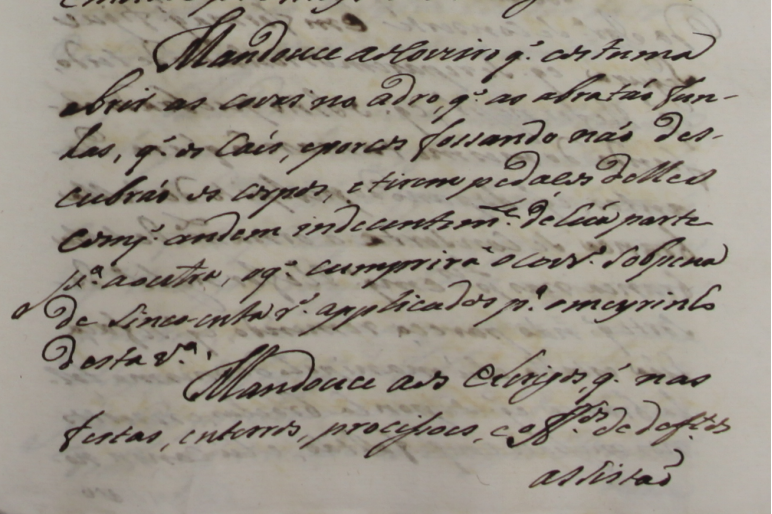 Mandouce ao Coveiro q̃. costuma
abrir as covas no adro, q̃. as abra tão fun-
das, q̃. os Caẽs, e porcos fossando não des-
cubrão os corpos, e tirem pedaços delles
com q̃. andem indecentem.te de hũa parte
p.ª a outra, o q̃. cumprirá o Cov.º sobpena
de sincoenta r.s applicados p.ª o meyrinho
desta v.ª.
Mandouce aos Clerigos, q̃. nas
festas, enterros, procissoes, e off.os de def.tos
assistão